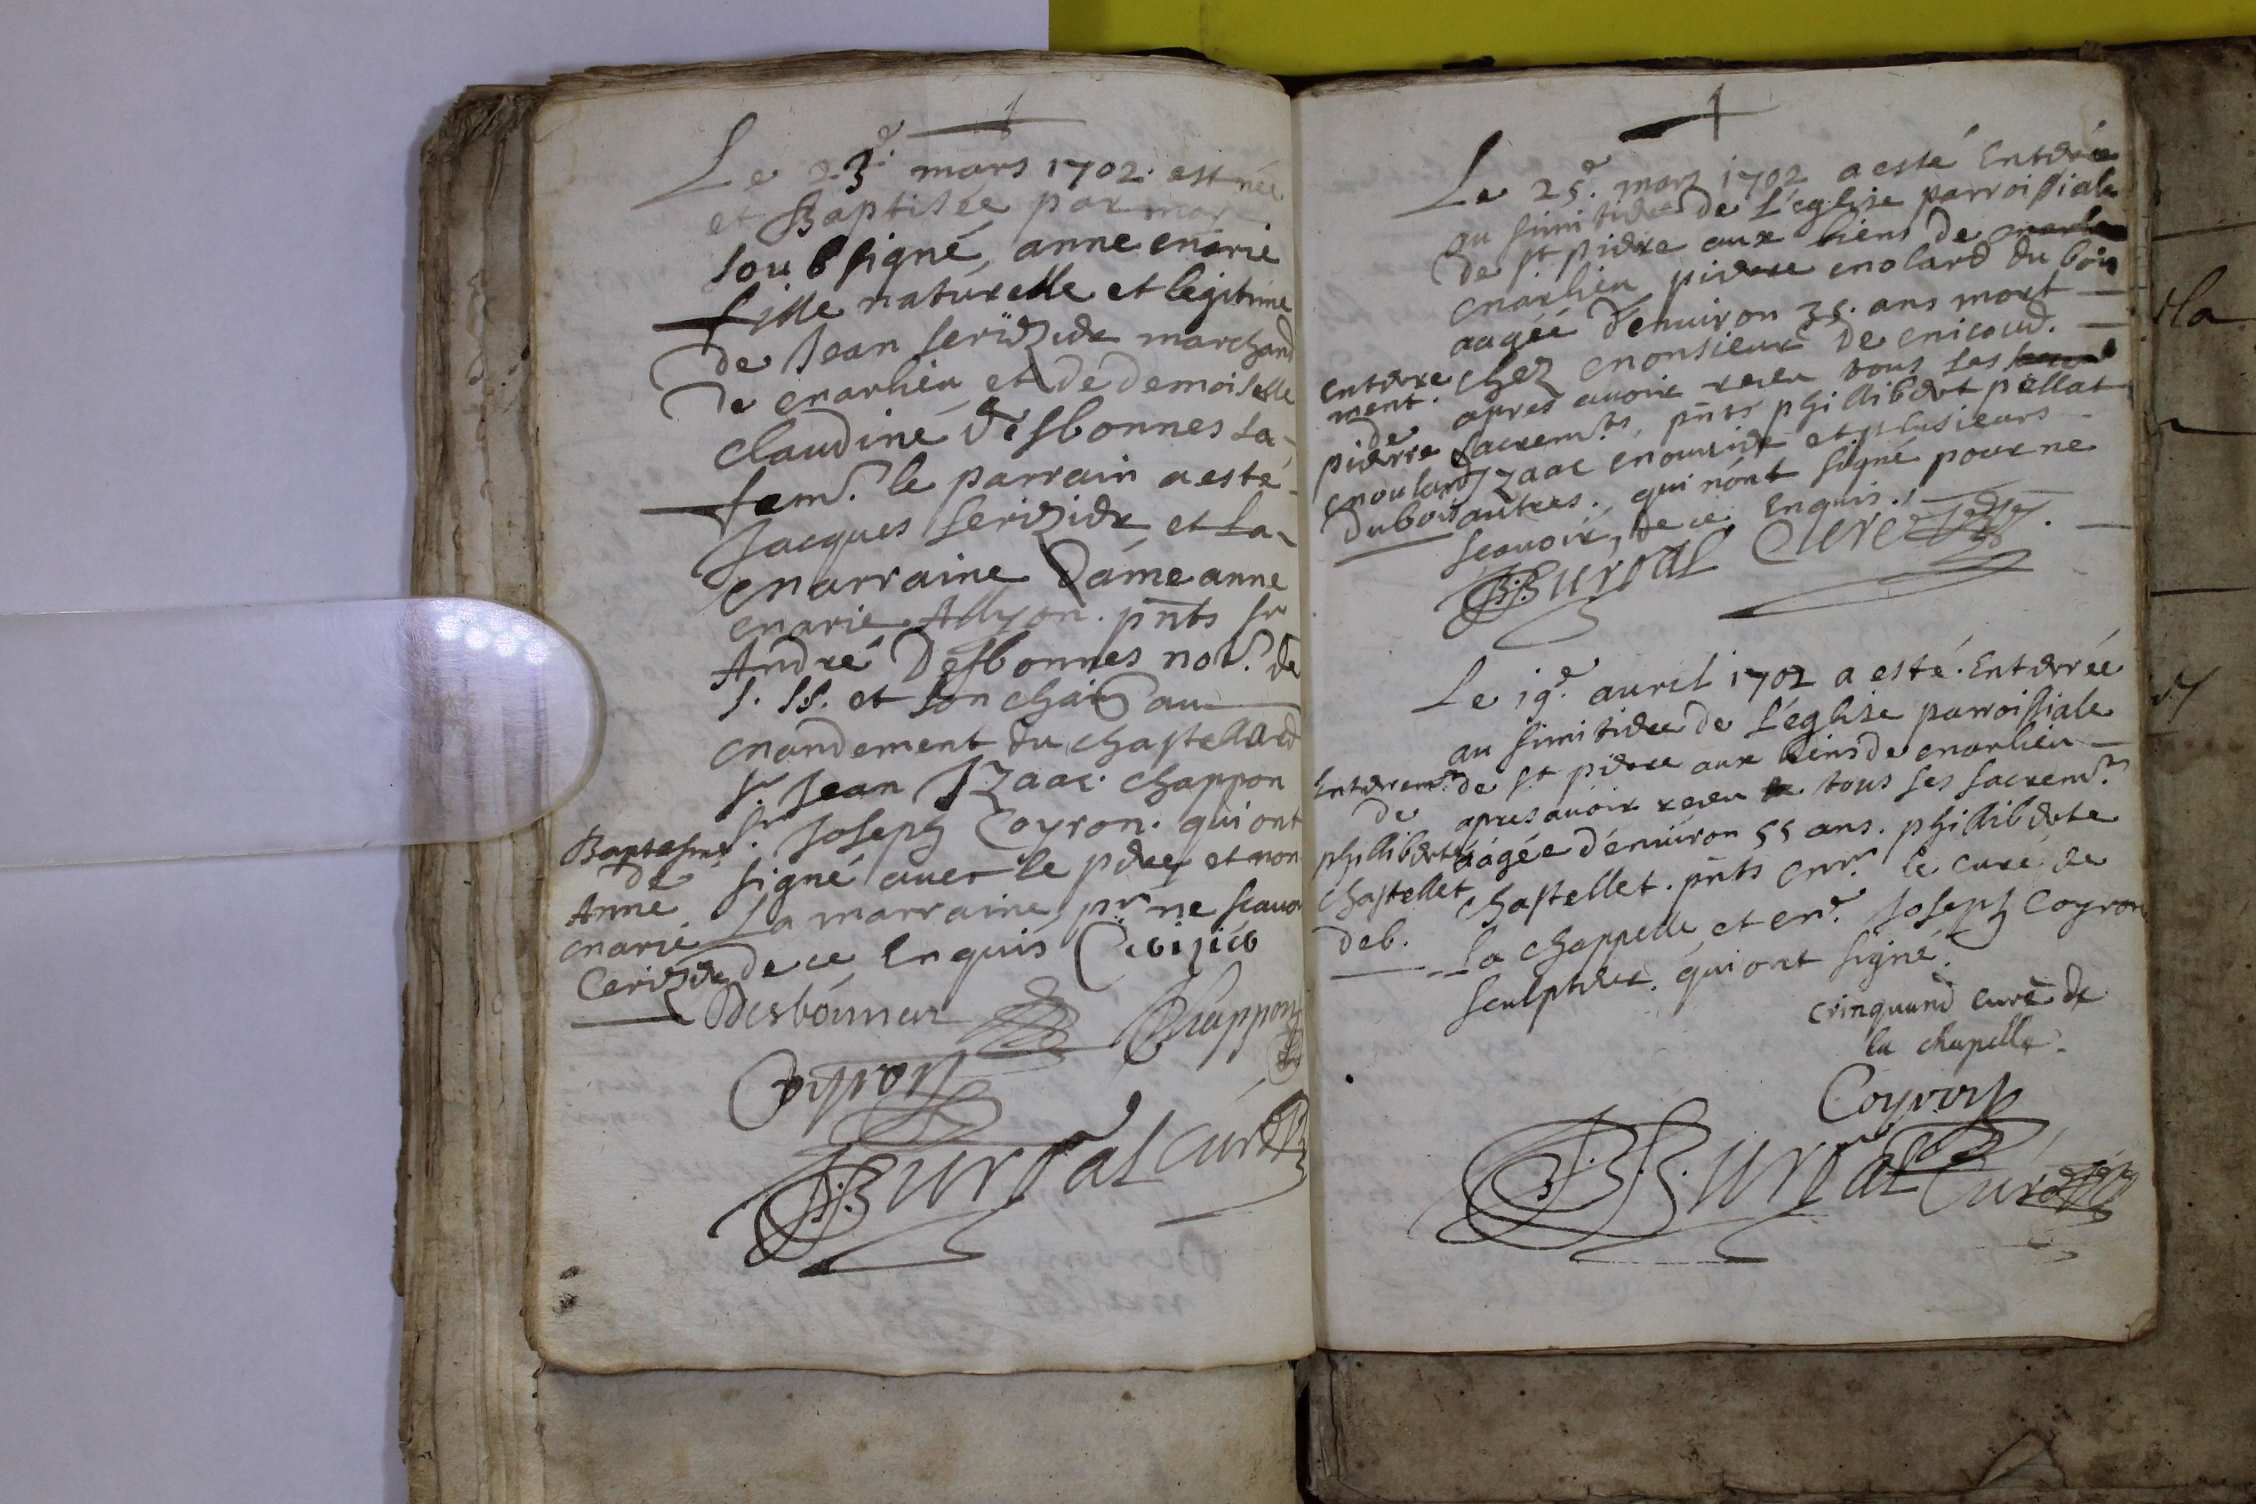 Le 23.e mars 1702. est née
et Baptisée par moy
soubsigné, anne marie
fille naturelle et legitime
de Jean serizier marchand
de marlieu et de demoiselle
claudine desbonnes sa
fem.e le parrain a esté
Jacques serizier et la
marraine dáme anne
marie Allyon. pn̄ts sr
André desbonnes not.e de
s. ss. et son chat au
mandement du chastellard
sr. Jean Izaac chappon
sr. Joseph Coyron. qui ont
signé avec le père et non
La marraine, pr ne scavoir
de ce Enquis
Baptesme
de
Anne
marie
Cerizier
Desbonnes
Chappon
Coyron
Burdal curé
Le 25.e mars 1702 a esté Enterée
au simitiere de L'eglise parroissiale
de st pierre aux liens de
marlieu pierre molard du bois
aagéé d'enuiron 35. ans mort
chez monsieur de micoud.
apres avoir receu tous ses
sacrem.ts, pn̄ts phillibert pellat
Izaac mourier et plusieurs
autres. qui n'ont signé pour ne
scavoir, de ce enquis.
Enterre
ment.
de
pierre
moulard
dubois
Burdal Curé
Le 19.e auril 1702 a esté. Enterrée
au simitiere de L'églize parroissiale
de st pierre aux liens de marlieu
apres avoir receu tous ses sacrem.ts
aágée d'enuiron 55 ans. philliberte
chastellet. pn̄ts mr. le curé de
La chappelle et mr. Joseph Coyron
sculpteur. qui ont signé.
Enterrem.t
de
phillibert
chastellet
deb.
crinquand curé de
la chapelle.
Coyron
Burdal Curé